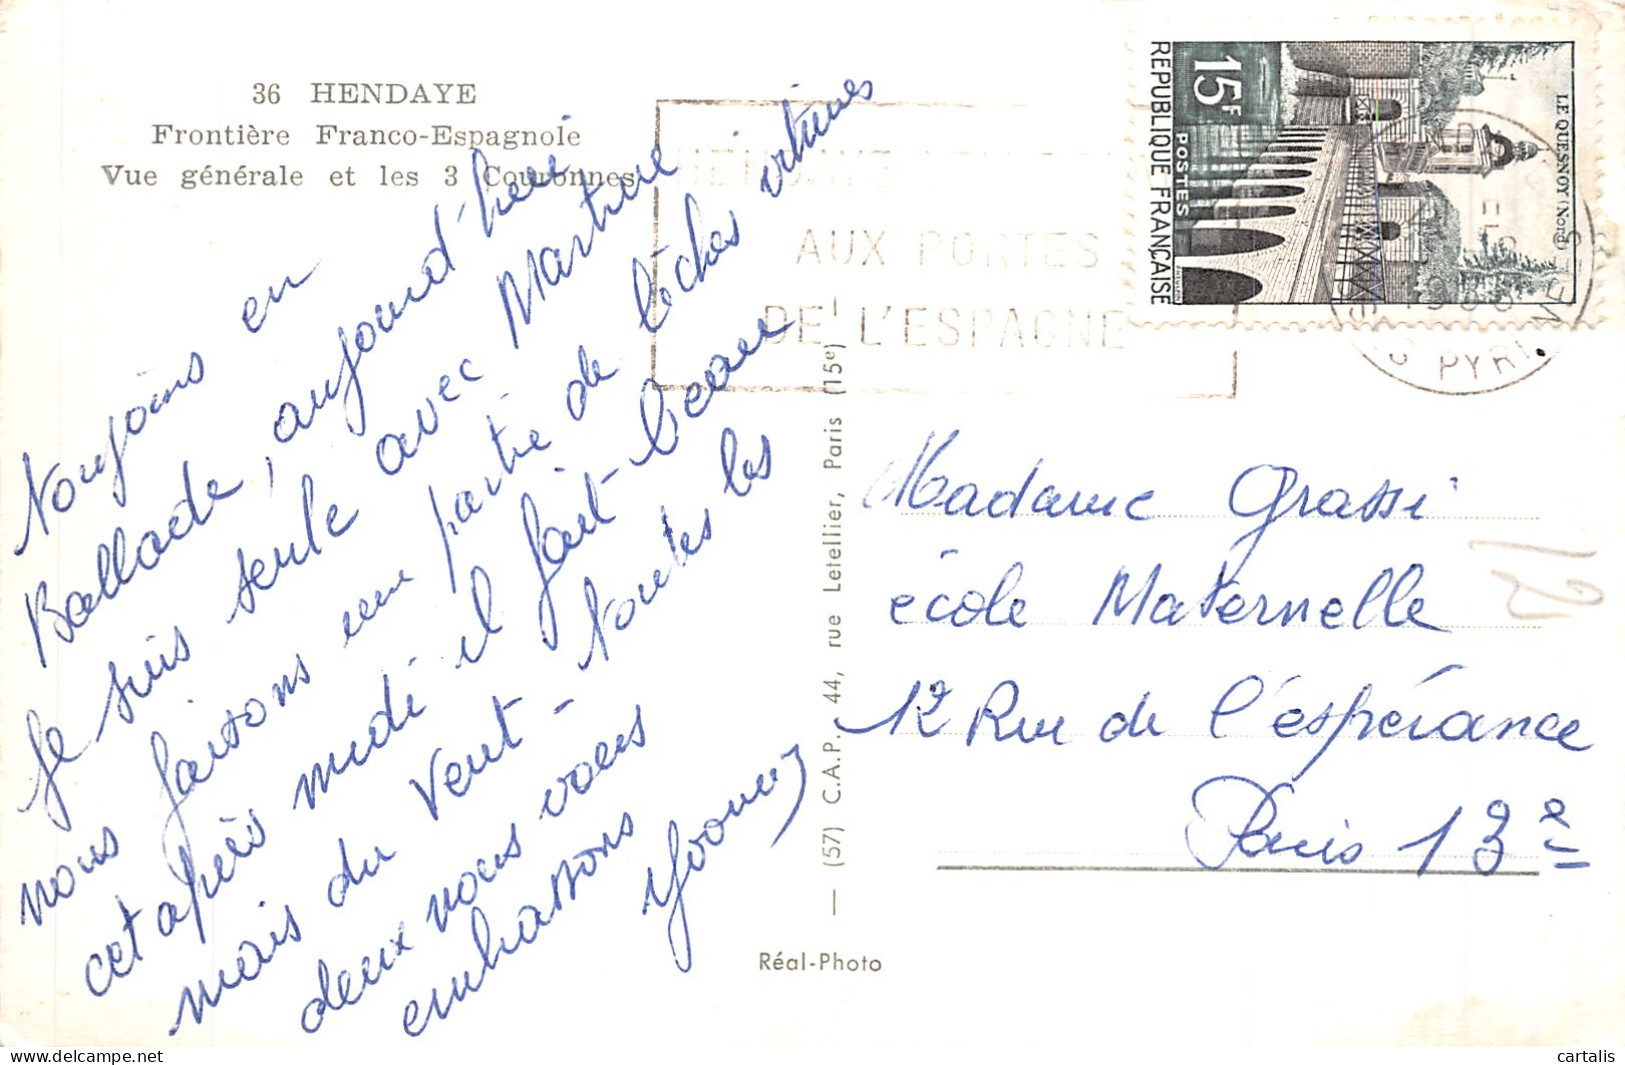 36 HENDAYE
Frontière Franco-Espagnole
Vue générale et les 3 Couronnes
Toujours en
Ballade, aujourd'heui
Je suis seule avec Martine
nous faisons une partie de lèches vitrines
cet après midi il fait beau
mais du vent - Toutes les
deux nous vous
embrassons
Yvonne
AUX PORTES
DE L'ESPAGNE
LE QUESNOY (Nord)
15F
POSTES
REPUBLIQUE FRANÇAISE
PYR
— (57) C.A.P. 44, rue Letellier, Paris (15e)
Réal-Photo
Madame Grassi
école Maternelle
12 Rue de l'espérance
Paris 13e
12
cartalis